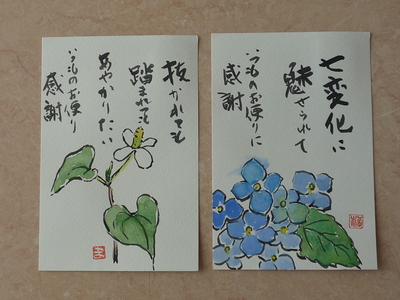 抜かれても
踏まれても
あやかりたい
いつものお便り
感謝
七変化に
魅せられて
いつものお便りに
感謝